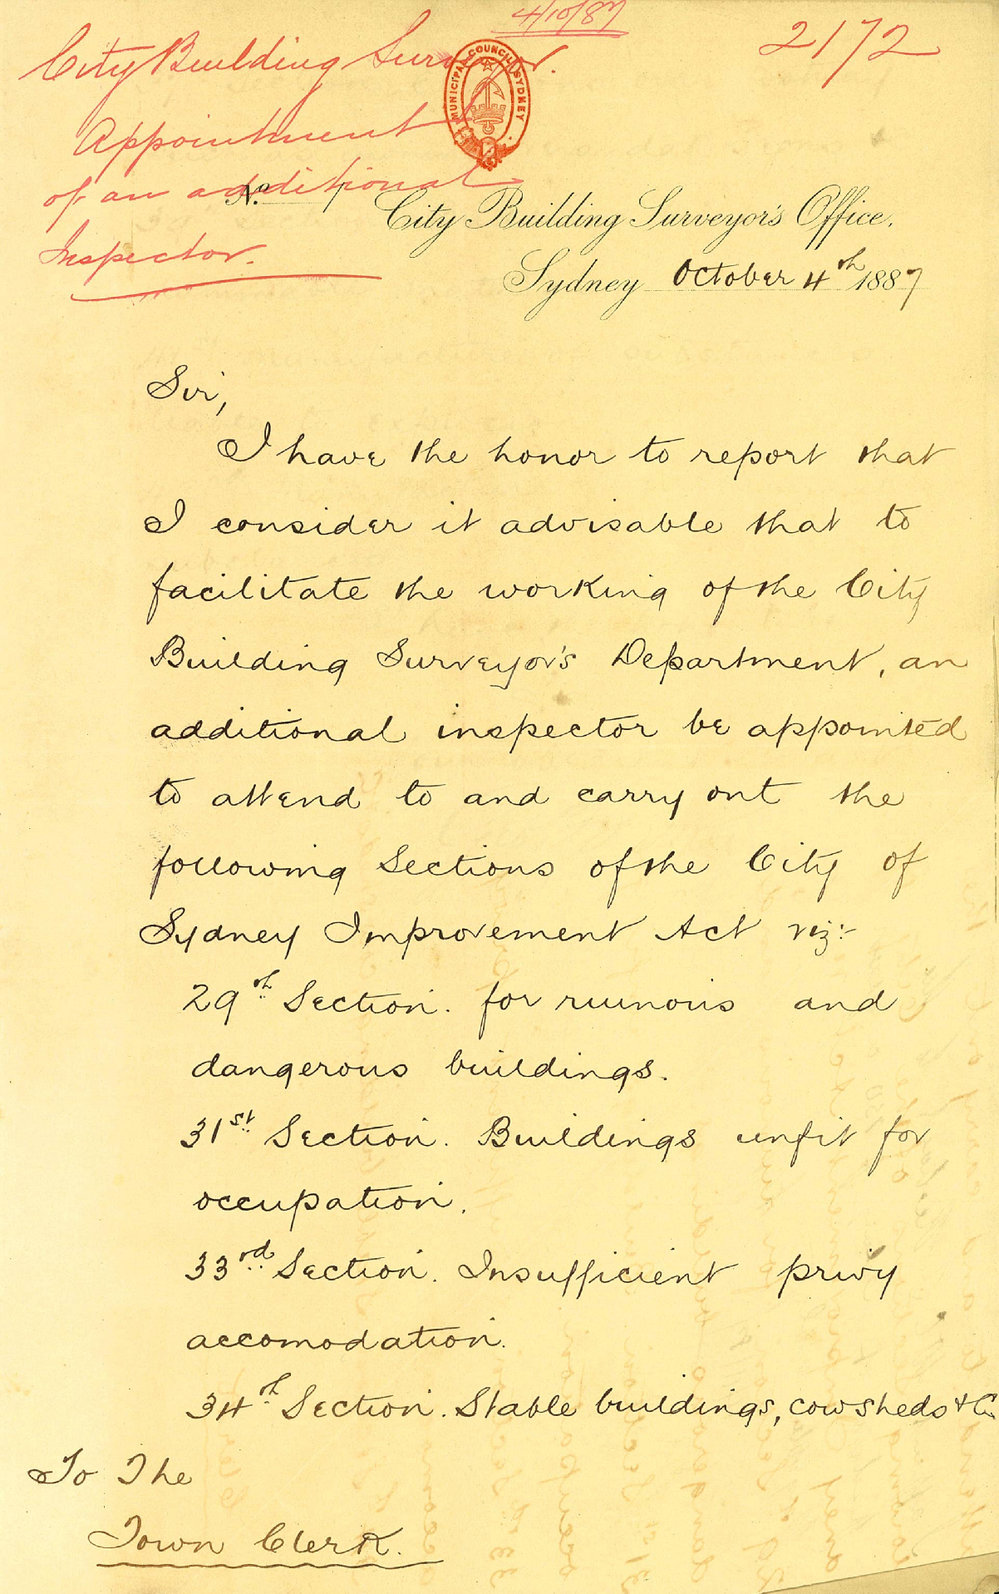 4/10/87
2172
City Building Surveyor.
Appointment
of an additional
Inspector.
MUNICIPAL COUNCIL SYDNEY
No.
City Building Surveyor's Office.
Sydney October 4th 1887
Sir,
I have the honor to report that
I consider it advisable that to
facilitate the working of the City
Building Surveyor's Department, an
additional inspector be appointed
to attend to and carry out the
following Sections of the City of
Sydney Improvement Act viz:-
29th Section. for ruinous and
dangerous buildings.
31st Section. Buildings unfit for
occupation.
33rd Section. Insufficient privy
accomodation.
34th Section. Stable buildings, cowsheds &c.
To The
Town Clerk.